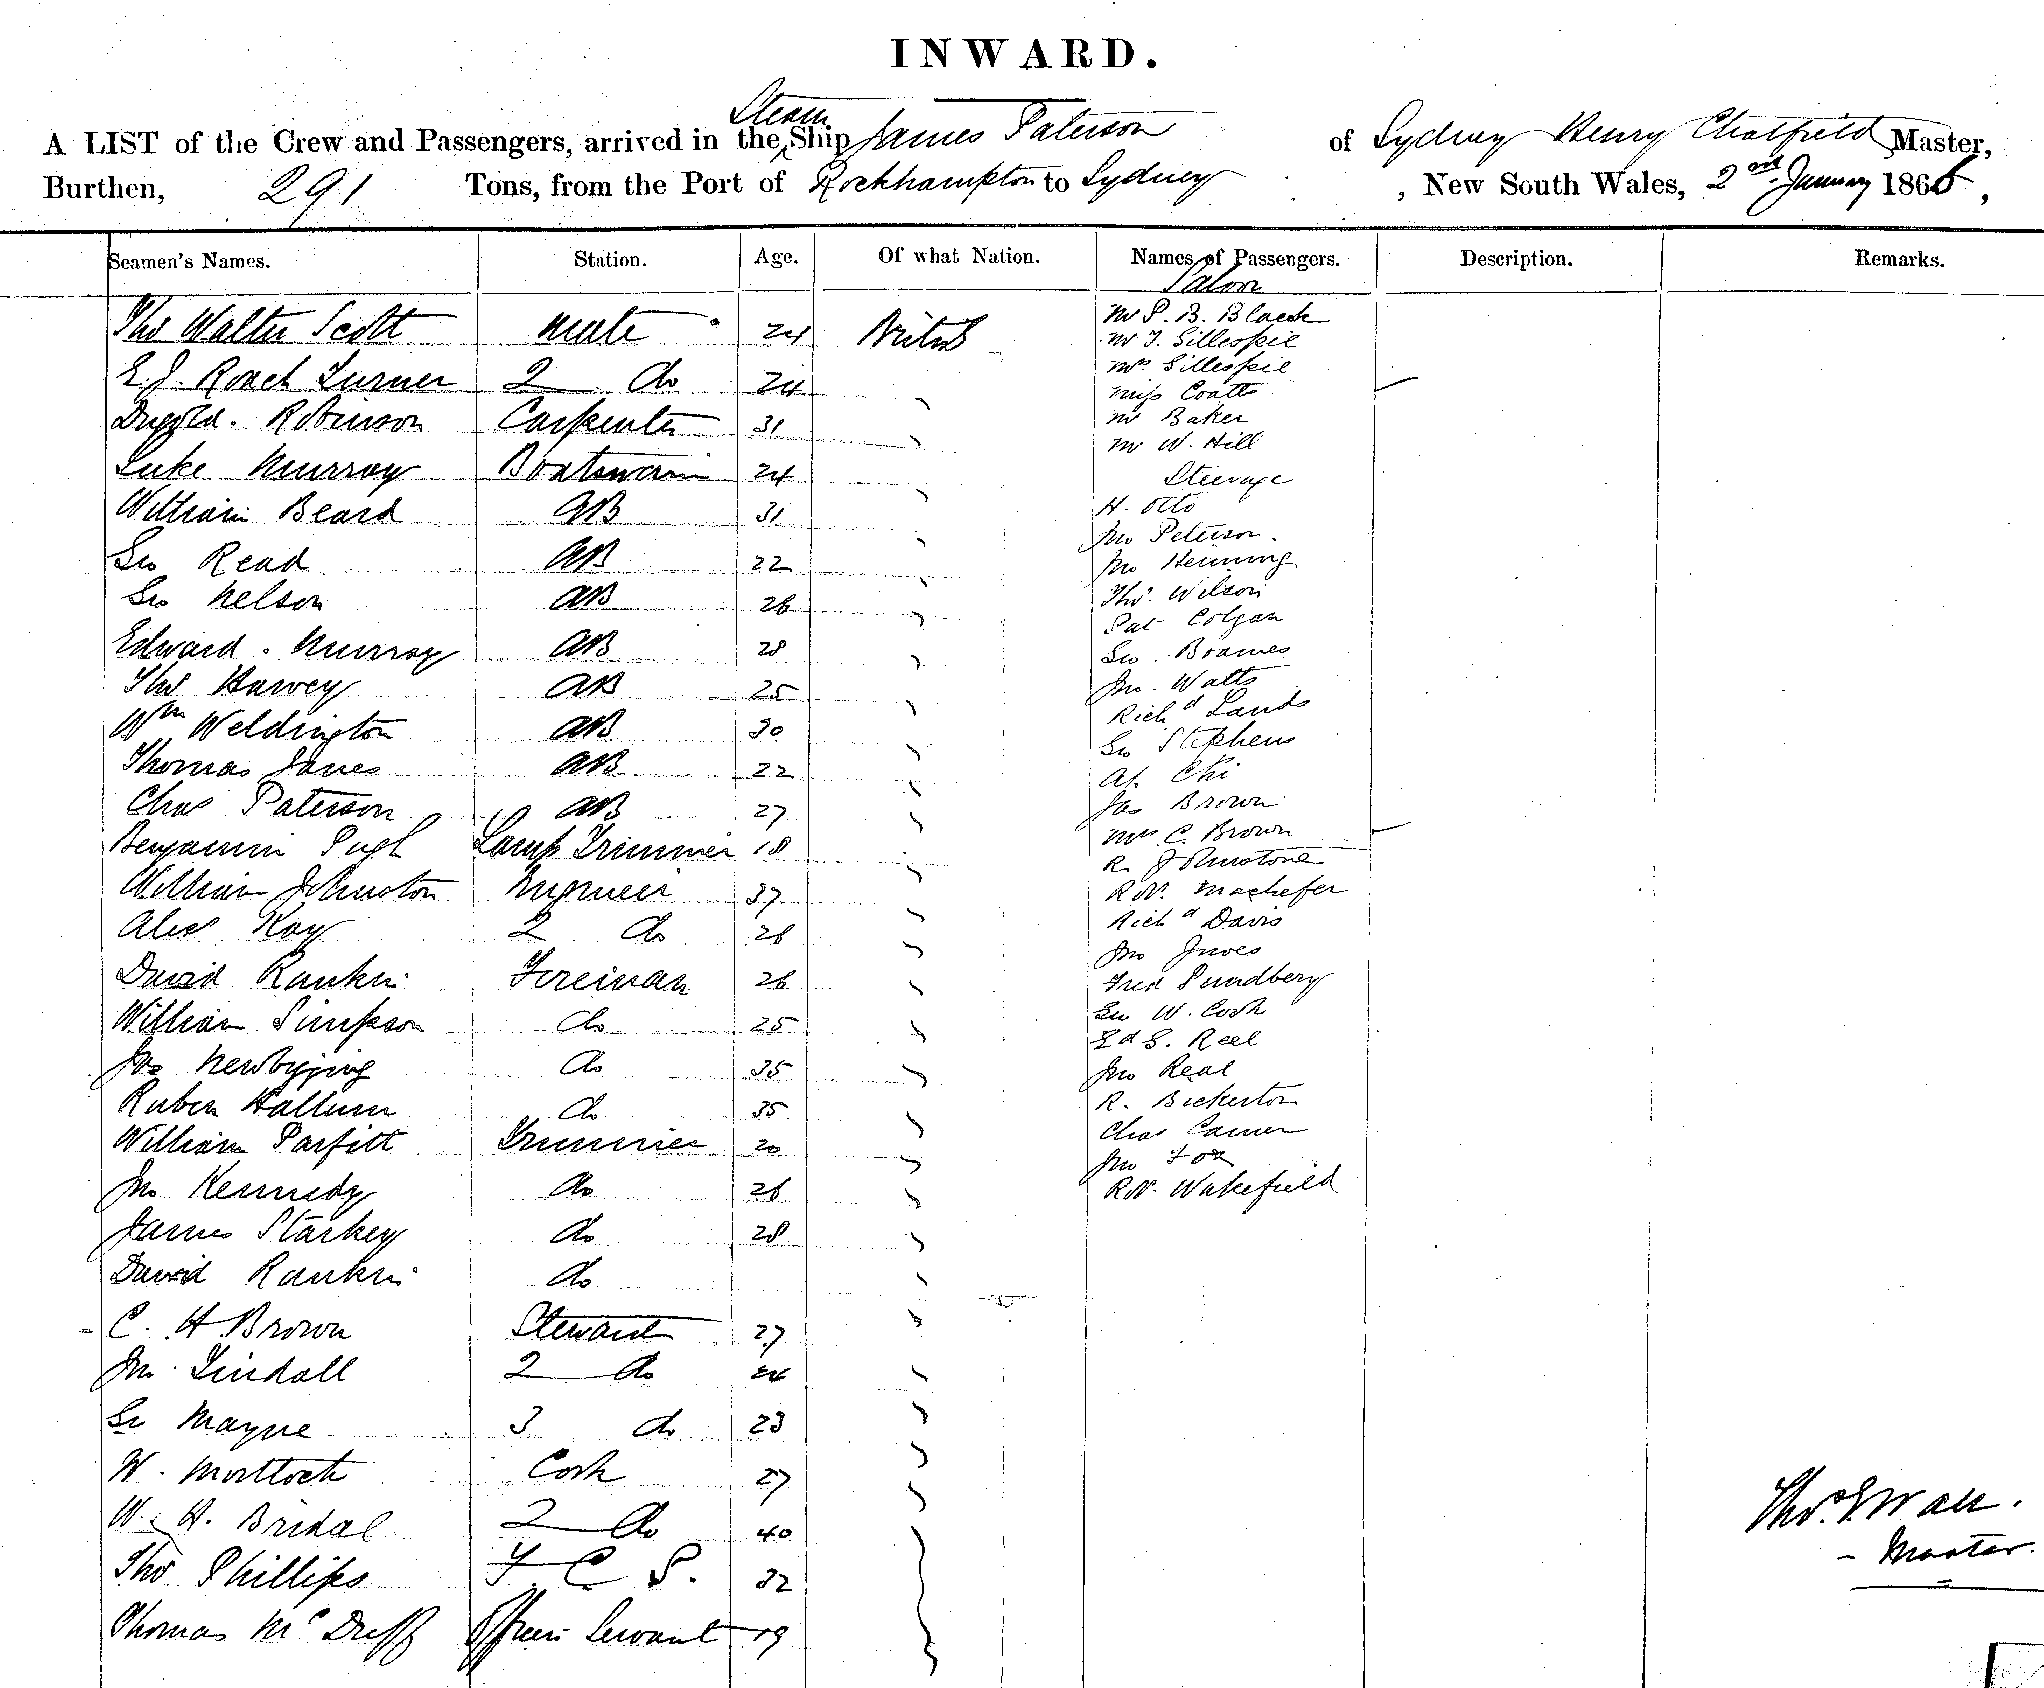 INWARD.
Steam
A LIST of the Crew and Passengers, arrived in the Ship James Paterson of Sydney Henry Chatfield Master,
Burthen, 291 Tons, from the Port of Rockhampton to Sydney , New South Wales, 2nd January 1866,
Seamen's Names. Station. Age. Of what Nation. Names of Passengers. Description. Remarks.
Thos Walter Scott mate 24 British
E. J. Roach Turner 2 Do 24
Robinson Carpenter 31
Luke Murray Boatswain 24
William Beard AB 31
Geo Read AB 22
Geo Nelson AB 26
Edward Murray AB 28
Thos Harvey AB 25
Wm Weldington AB 30
Thomas Jones AB 22
Chas Paterson AB 27
Benjamin Pugh Lamp Trimmer 18
William Johnston Engineer 37
Alex Kay 2 Do 26
David Rankin Fireman 26
William Simpson Do 25
Jno Do 35
Ruben Hallum Do 35
William Parfitt Trimmer 20
Jno Kennedy Do 26
James Starkey Do 28
David Rankin Do
C. H Brown Steward 27
Jno Tindall 2 Do 24
Geo Mayne 3 do 23
W. Mortlock Cook 27
W. H. Bridal 2 Do 40
Thos Phillips F C S. 32
Thomas McDuff Officers Servant 19
Saloon
Mr P. B. Black
Mr T. Gillespie
Mrs Gillespie
Miss Coatts
Mr Baker
Mr W. Hill
Steerage
H. Otto
Jno Peterson.
Jno Henning
Thos. Wilson
Pat Colgan
Geo. Brames
Jno. Watts
Richd Lands
Geo Stephens
Ah Chi
Jas Brown
Mrs C. Brown
R. Johnstone
Robt. Machefer
Richd Davis
Jno
Fred Sundberg
Geo W. Cook
Ed S. Reel
Jno Real
R. Bickerton
Chas
Jno Fox
Robt. Wakefield
Master.